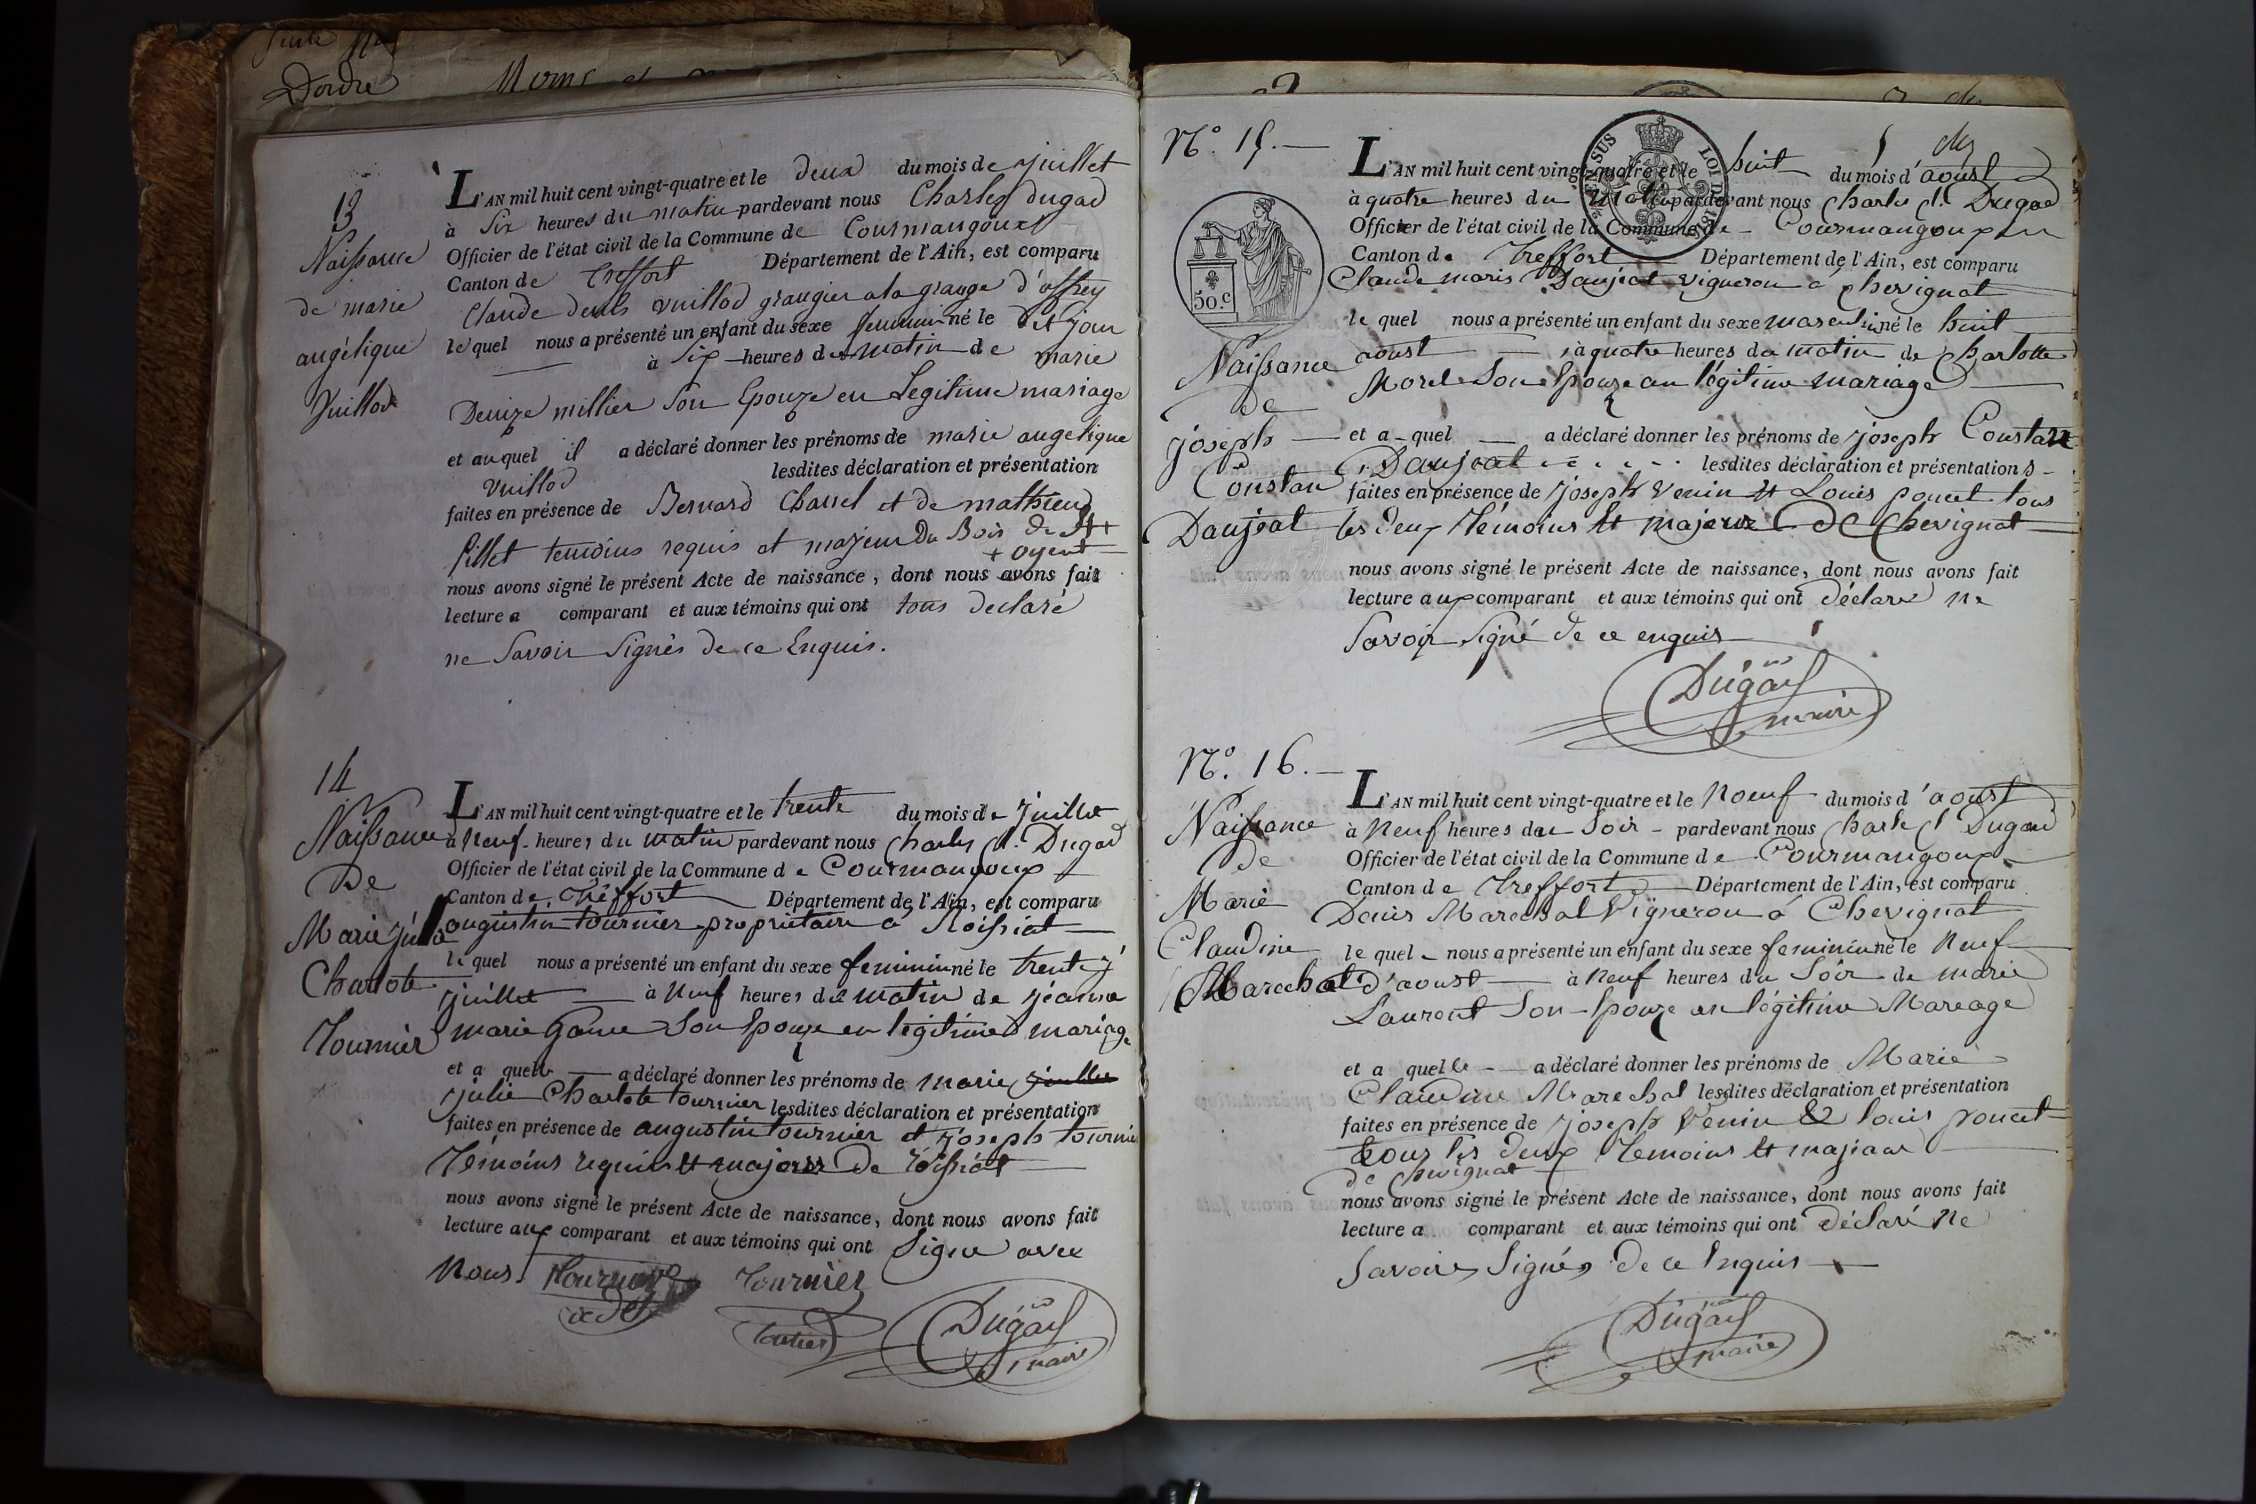 Suite
D'ordre
Noms et
13
Naissance
de marie
angélique
Vuillod
L'AN mil huit cent vingt-quatre et le deux du mois de juillet
à Six heures du matin pardevant nous Charles dugad
Officier de l'état civil de la Commune de Courmangoux
Canton de treffort Département de l'Ain, est comparu
Claude denis vuillod grangier a la grange d'
lequel nous a présenté un enfant du sexe feminin né le dit jour
à Six heures du matin de marie
Denize millier Son Epouze en Legitime mariage
et auquel il a déclaré donner les prénoms de marie angelique
vuillod lesdites déclaration et présentation
faites en présence de Bernard Charrel et de mathieu
fillet temoins requis et majeur Du Bois de St +
+ oyent
nous avons signé le présent Acte de naissance, dont nous avons fait
lecture a comparant et aux témoins qui ont tous declaré
ne Savoir Signés de ce Enquis.
14
Naissance
De
Marie julie
Charlote
Tournier
L'AN mil huit cent vingt-quatre et le trente du mois de juillet
à Neuf heures du matin pardevant nous Charles C. Dugad
Officier de l'état civil de la Commune de Courmangoux
Canton de Treffort Département de l'Ain, est comparu
augustin tournier propriétaire à Roissiat
le quel nous a présenté un enfant du sexe feminin né le trente
juillet à Neuf heures du matin de jéanne
marie Son Epouze en legitime mariage
et a quele a déclaré donner les prénoms de marie
julie Charlote tournier lesdites déclaration et présentation
faites en présence de augustin tournier et joseph tournier
Témoins requis et majeurs De roissiat
nous avons signé le présent Acte de naissance, dont nous avons fait
lecture aux comparant et aux témoins qui ont Signe avec
Nous. Tournier Tournier
adj
Dugad
maire
N° 15.
50.c
Naissance
De
joseph
Constan
Daujeat
L'AN mil huit cent vingt-quatre et le huit du mois d'aoust
à quatre heures du matin pardevant nous Charles C. Dugad
Officier de l'état civil de la Commune de Courmangoux
Canton de Treffort Département de l'Ain, est comparu
Claude marie Daujeat vigneron à Chevignat
le quel nous a présenté un enfant du sexe masculin né le huit
aoust à quatre heures du matin de Charlotte
Morel Son Epouze en légitime mariage
et a quel a déclaré donner les prénoms de joseph Constan
Daujeat lesdites déclaration et présentations
faites en présence de joseph Venin et Louis poncet tous
les deux Témoins et majeurs De Chevignat
nous avons signé le présent Acte de naissance, dont nous avons fait
lecture aux comparant et aux témoins qui ont Déclaré ne
Savoir Signé de ce enquis
Dugad
maire
N° 16.
Naissance
De
Marie
Claudine
Marechal
L'AN mil huit cent vingt-quatre et le Neuf du mois d'aoust
à Neuf heures du Soir pardevant nous Charle C Dugad
Officier de l'état civil de la Commune de Courmangoux
Canton de Treffort Département de l'Ain, est comparu
Denis Marechal Vigneron á Chevignat
le quel nous a présenté un enfant du sexe feminin né le Neuf
d'aoust à Neuf heures du Soir de marie
Laurent Son Epouze en légitime Mareage
et a quelle a déclaré donner les prénoms de Marie
Claudine Marechal lesdites déclaration et présentation
faites en présence de joseph Venin & louis poncet
tous les deux Temoins et majeur
de Chevignat
nous avons signé le présent Acte de naissance, dont nous avons fait
lecture a comparant et aux témoins qui ont Déclaré Ne
Savoir Signés De ce Enquis
Dugad
maire